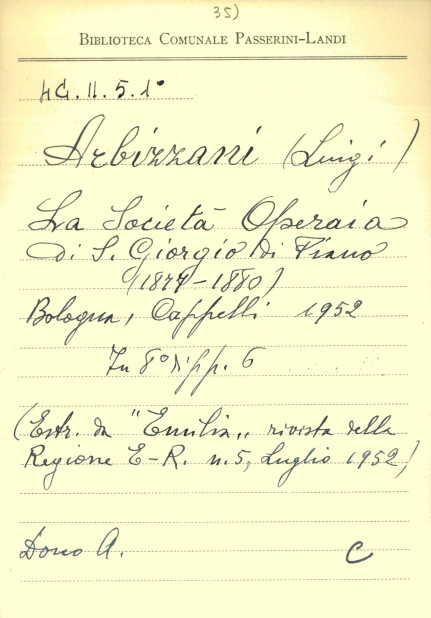 35)
BIBLIOTECA COMUNALE PASSERINI-LANDI
4G. II. 5. 1°
Arbizzani (Luigi)
La Società Operaia
di S. Giorgio di Piano
(1877-1880)
Bologna, Cappelli 1952
In 8° di pp. 6
(Estr. da "Emilia" rivista della
Regione E-R. n. 5, Luglio 1952)
Dono A. C